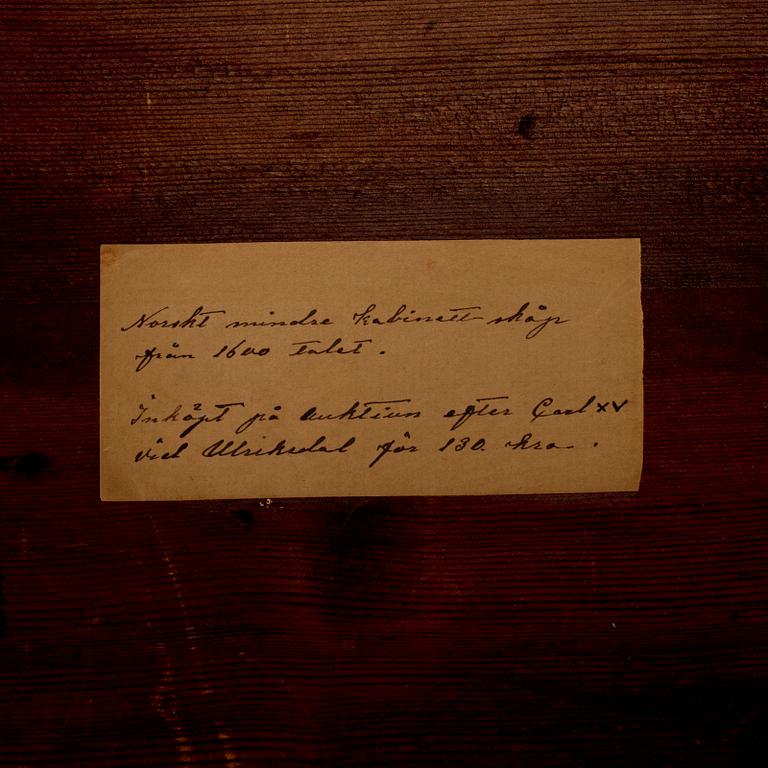 Norskt mindre kabinett skåp
från 1600 talet.
Inköpt på auktion efter Carl XV
vid Ulriksdal för 130. kro.